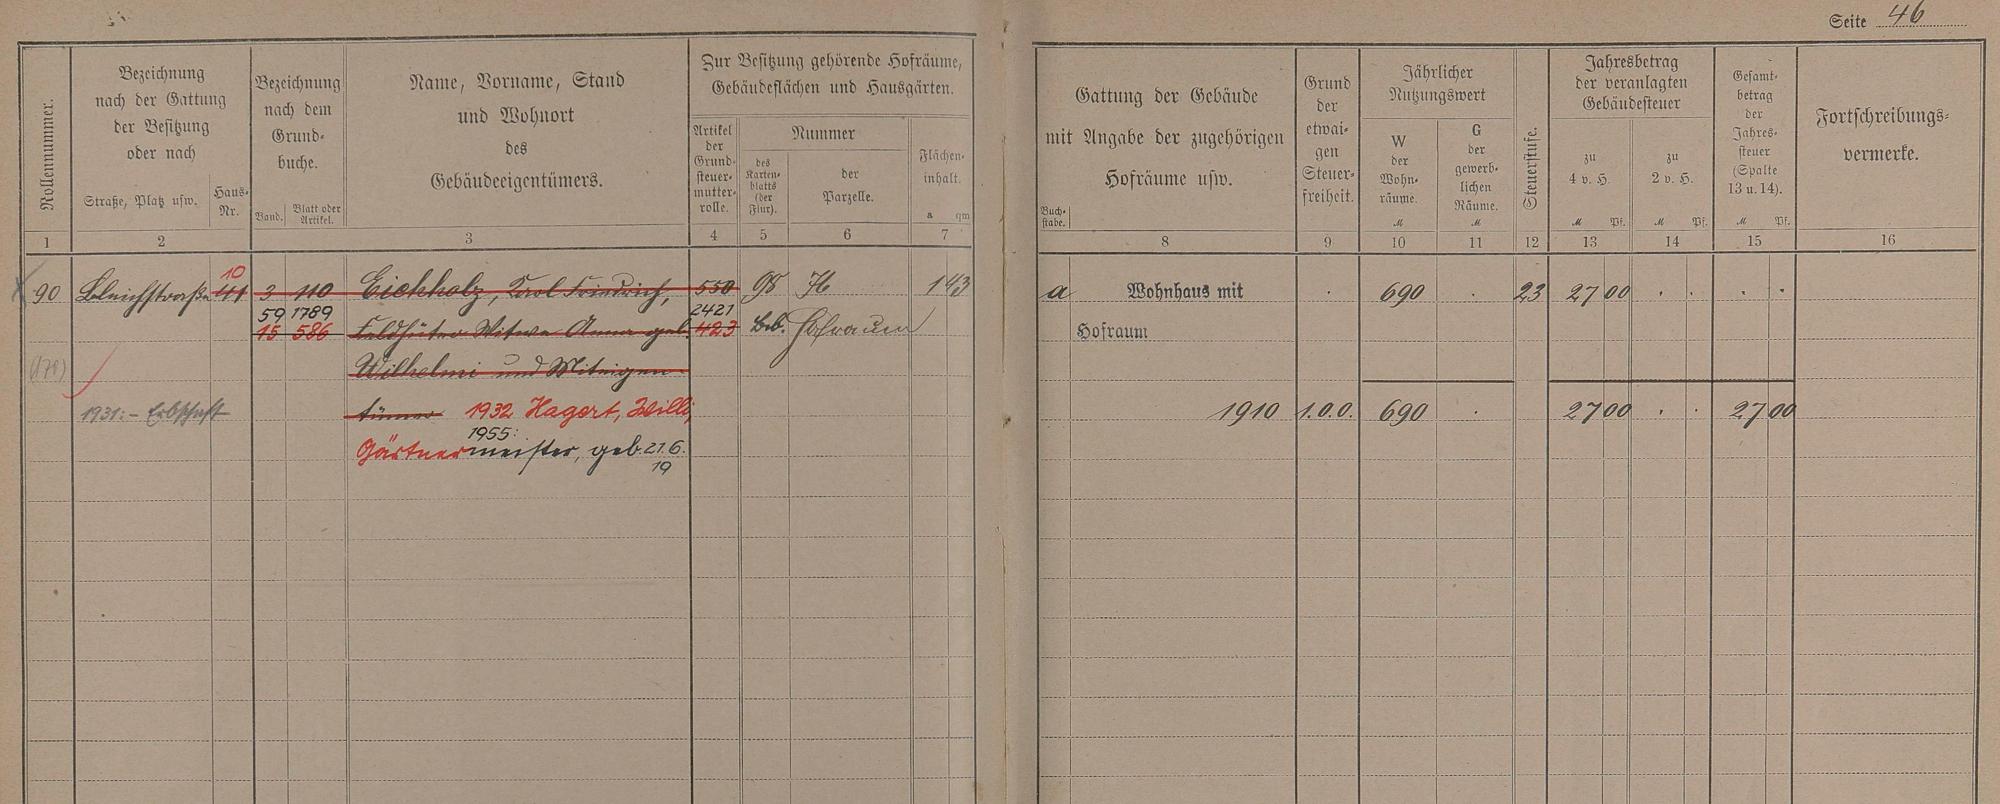 Seite 46
Rollennummer.
Bezeichnung
nach der Gattung
der Besitzung
oder nach
Straße, Platz usw.
Haus-
Nr.
Bezeichnung
nach dem
Grund-
buche.
Band.
Blatt oder
Artikel.
Name, Vorname, Stand
und Wohnort
des
Gebäudeeigentümers.
Zur Besitzung gehörende Hofräume,
Gebäudeflächen und Hausgärten.
Artikel
der
Grund-
steuer-
mutter-
rolle.
Nummer
des
Karten-
blatts
(der
Flur).
der
Parzelle.
Flächen-
inhalt.
a qm
Buch-
stabe.
Gattung der Gebäude
mit Angabe der zugehörigen
Hofräume usw.
Grund
der
etwai-
gen
Steuer-
freiheit.
Jährlicher
Nutzungswert
W
der
Wohn-
räume.
M
G
der
gewerb-
lichen
Räume.
M
Steuerstufe.
Jahresbetrag
der veranlagten
Gebäudesteuer
zu
4 v. H.
M Pf.
zu
2 v. H.
M Pf.
Gesamt-
betrag
der
Jahres-
steuer
(Spalte
13 u. 14).
M Pf.
Fortschreibungs-
vermerke.
1 2 3 4 5 6 7 8 9 10 11 12 13 14 15 16
10
90 Bleichstraße 41 3 110 Eichholz, Karl Friedrich, 550 98 H 1 43 a Wohnhaus mit 690 . 23 27 00 . . . .
59 1789 2421
15 586 Feldhüter Witwe Anna geb. 423 Beb. Hofraum Hofraum
(178) Wilhelmi und Miteigen-
1931:- Erbschaft tümer 1932 Hagert, Willi, 1910 1.0.0. 690 . 27 00 . . 27 00
1955:
Gärtnermeister, geb. 21.6.
19